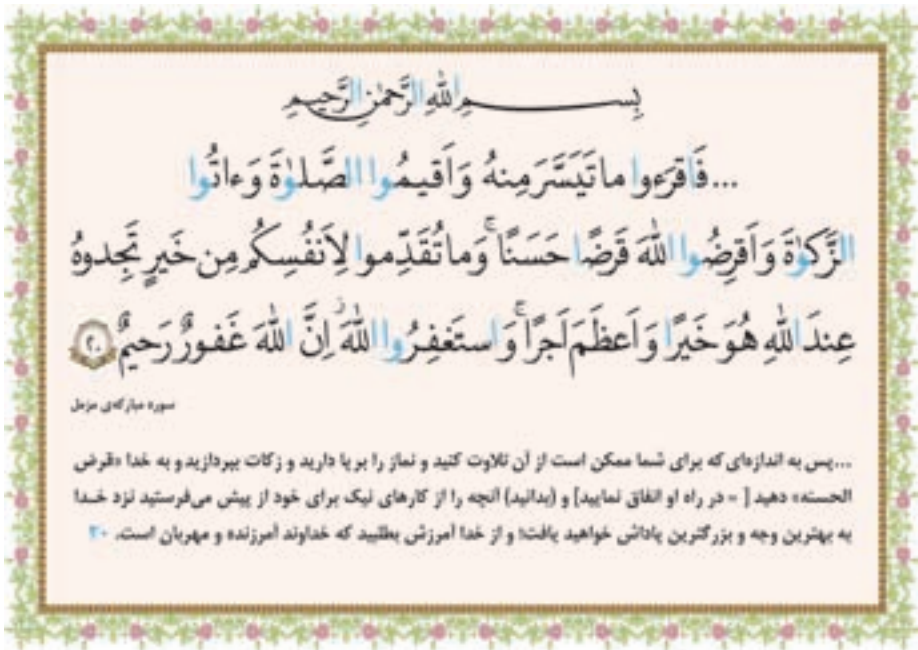 بِسـمِ اللّٰهِ الرَّحمٰنِ الرَّحيمِ
...فَاقرَءوا ما تَيَسَّرَ مِنهُ وَ اَقيمُوا الصَّلوٰةَ وَ ءاتُوا
الزَّكوٰةَ وَ اَقرِضُوا اللّٰهَ قَرضًا حَسَنًا ۚ وَ ما تُقَدِّموا لِاَنفُسِكُم مِن خَيرٍ تَجِدوهُ
عِندَ اللّٰهِ هُوَ خَيرًا وَ اَعظَمَ اَجرًا ۚ وَ استَغفِرُوا اللّٰهَ ۖ اِنَّ اللّٰهَ غَفورٌ رَحيمٌ ٢٠
سوره مبارکه‌ی مزمل
...پس به اندازه‌ای که برای شما ممکن است از آن تلاوت کنید و نماز را برپا دارید و زکات بپردازید و به خدا «قرض
الحسنه» دهید [ = در راه او انفاق نمایید] و (بدانید) آنچه را از کارهای نیک برای خود از پیش می‌فرستید نزد خـدا
به بهترین وجه و بزرگترین پاداش خواهید یافت؛ و از خدا آمرزش بطلبید که خداوند آمرزنده و مهربان است. ۲۰